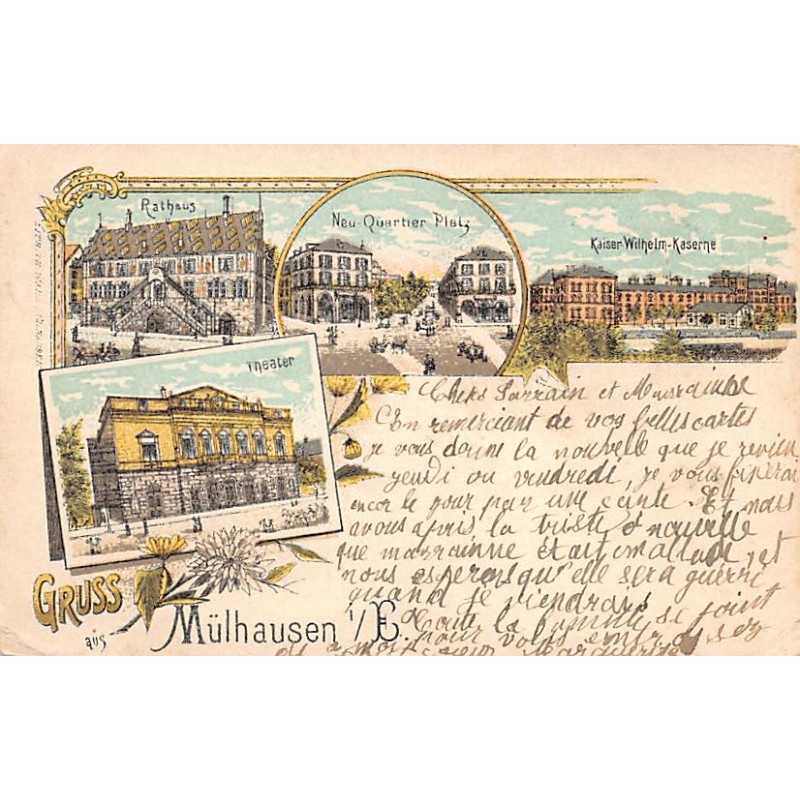 Rathaus
Neu-Quartier Platz
Kaiser-Wilhelm-Kaserne
Theater
Chers Parrain et Marrainne
En remerciant de vos belles cartes
je vous donne la nouvelle que je revien
jeudi ou vendredi, je vous
encor le jour par une carte. Et nous
avous apris la triste nouvelle
que marrainne était malade, et
nous esperons qu'elle sera guerri
quand je viendrais
Toute la famille se joint
a moi pour vous embrassez
Marguerite
GRUSS
aus
Mülhausen i/E.